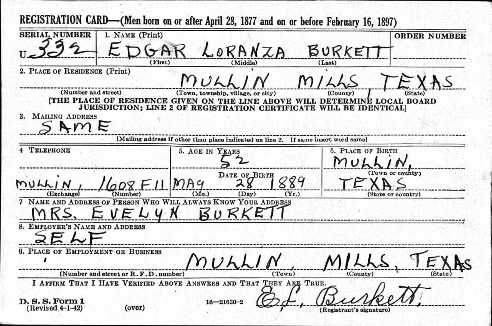 REGISTRATION CARD—(Men born on or after April 28, 1877 and on or before February 16, 1897)
SERIAL NUMBER 1. NAME (Print) ORDER NUMBER
U 332 EDGAR LORANZA BURKETT
(First) (Middle) (Last)
2. PLACE OF RESIDENCE (Print)
MULLIN MILLS, TEXAS
(Number and street) (Town, township, village, or city) (County) (State)
[THE PLACE OF RESIDENCE GIVEN ON THE LINE ABOVE WILL DETERMINE LOCAL BOARD
JURISDICTION; LINE 2 OF REGISTRATION CERTIFICATE WILL BE IDENTICAL]
3. MAILING ADDRESS
SAME
[Mailing address if other than place indicated on line 2. If same insert word same]
4 TELEPHONE 5. AGE IN YEARS 6. PLACE OF BIRTH
52 MULLIN,
DATE OF BIRTH (Town or county)
MULLIN, 1608F11 MAY 28 1889 TEXAS
(Exchange) (Number) (Mo.) (Day) (Yr.) (State or country)
7 NAME AND ADDRESS OF PERSON WHO WILL ALWAYS KNOW YOUR ADDRESS
MRS. EVELYN BURKETT
8. EMPLOYER'S NAME AND ADDRESS
SELF
9. PLACE OF EMPLOYMENT OR BUSINESS
MULLIN, MILLS, TEXAS
(Number and street or R. F. D. number) (Town) (County) (State)
I AFFIRM THAT I HAVE VERIFIED ABOVE ANSWERS AND THAT THEY ARE TRUE.
D. S. S. Form 1 16—21630-2 E.L. Burkett.
(Revised 4-1-42) (over) (Registrant's signature)